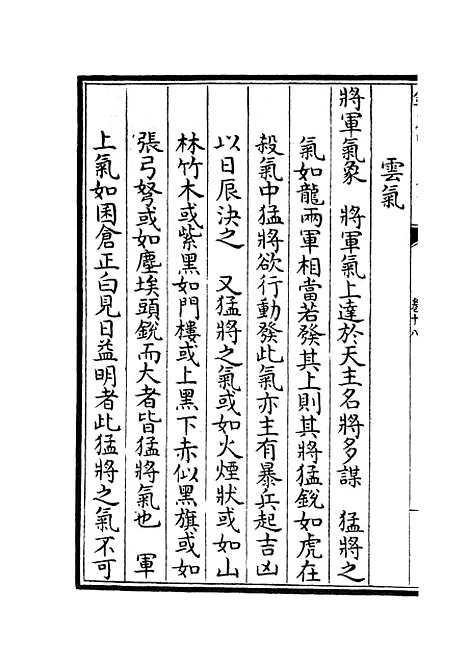 雲氣
將軍氣象　將軍氣上達於天主名將多謀　猛將之
氣如龍兩軍相當若發其上則其將猛銳如虎在
殺氣中猛將欲行動發此氣亦主有暴兵起吉凶
以日辰決之　又猛將之氣或如火煙狀或如山
林竹木或紫黑如門樓或上黑下赤似黑旗或如
張弓弩或如塵埃頭銳而大者皆猛將氣也　軍
上氣如囷倉正白見日益明者此猛將之氣不可